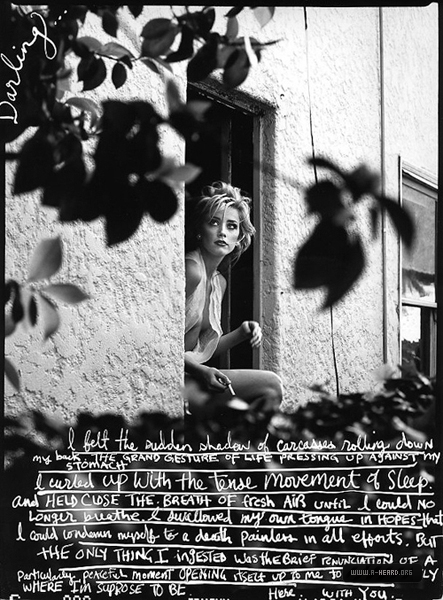 Darling...
I felt the sudden shadow of carcasses rolling down
my back. THE GRAND GESTURE OF LIFE PRESSING UP AGAINST MY
STOMACH.
I curled up With the tense Movement of Sleep.
and HELD CLOSE THE BREATH OF fresh AIR until I could NO
Longer breathe. I swallowed my own tongue in HOPES that
I could condemn myself to a death painless in all efforts. BUT
THE ONLY THING I INGESTED Was the Brief renunciation OF A
particularly peaceful moment OPENING itself up to me to LY
WWW.A-HEARD.ORG
WHERE I'm SUPPOSE TO BE
Here with You.